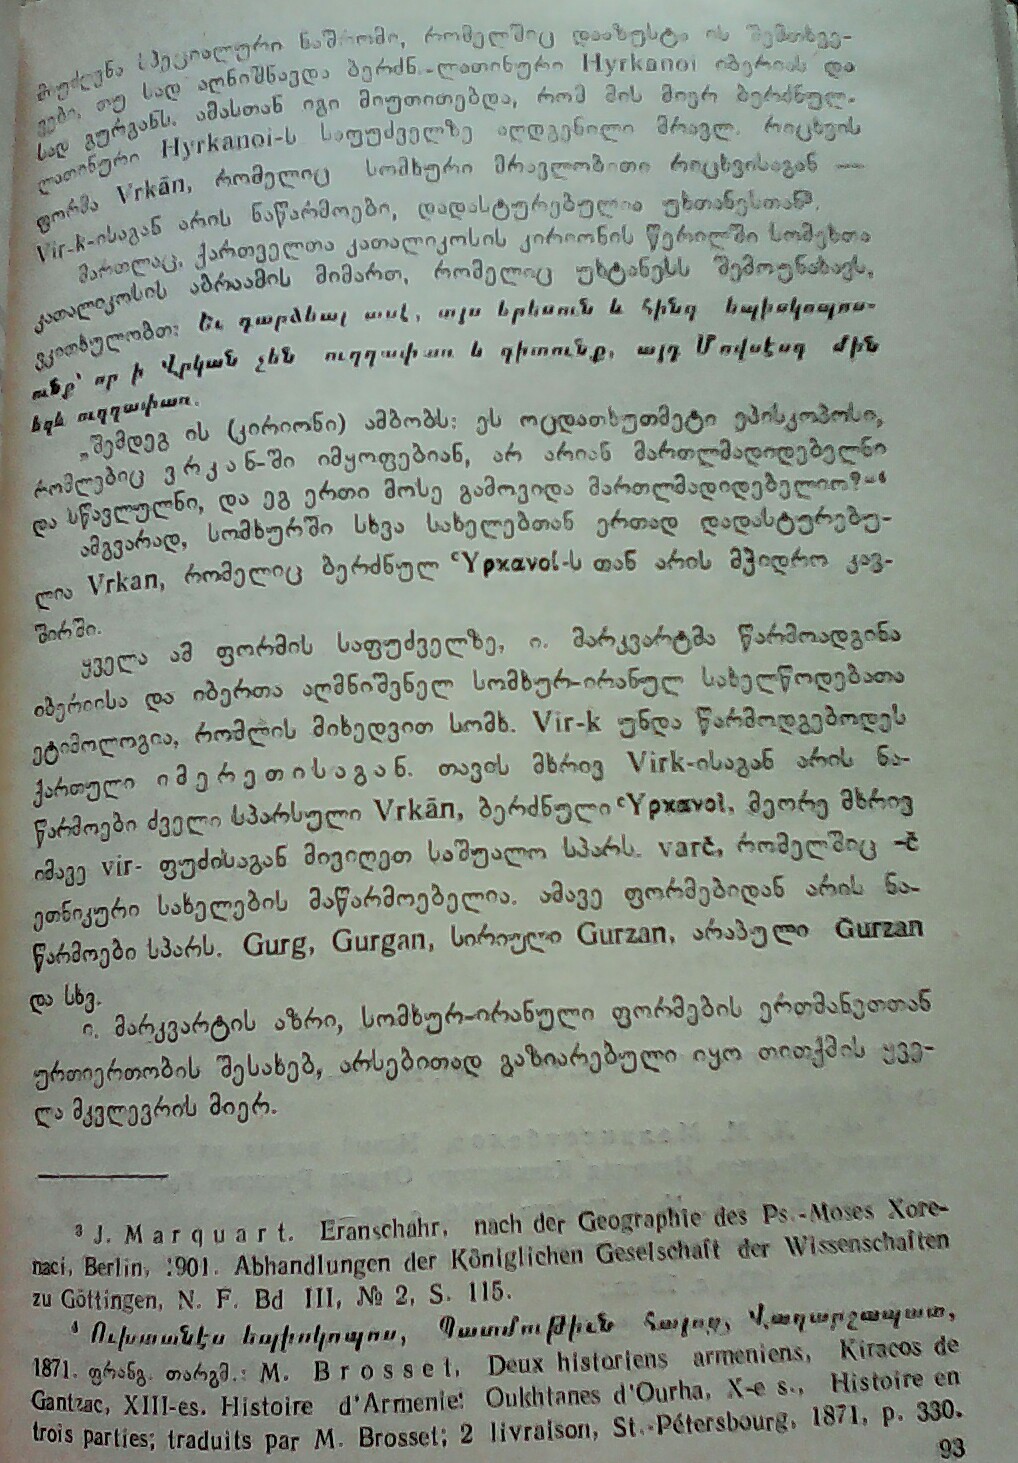 მიუძღვნა სპეციალური ნაშრომი, რომელშიც დააზუსტა ის შემთხვე-
ვები, თუ სად აღნიშნავდა ბერძნ.-ლათინური Hyrkanoi იბერიას და
სად გურგანს. ამასთან იგი მიუთითებდა, რომ მის მიერ ბერძნულ-
ლათინური Hyrkanoi-ს საფუძველზე აღდგენილი მრავლ. რიცხვის
ფორმა Vrkān, რომელიც სომხური მრავლობითი რიცხვისაგან —
Vir-k-ისაგან არის ნაწარმოები, დადასტურებულია უხთანესთან³.
მართლაც, ქართველთა კათალიკოსის კირიონის წერილში სომეხთა
კათალიკოსის აბრაამის მიმართ, რომელიც უხტანესს შემოუნახავს,
ვკითხულობთ: Եւ դարձեալ ասէ, այս երեսուն և հինգ եպիսկոպոս-
ունք՝ որ ի Վրկան չեն ուղղափառ և գիտունք, այդ Մովսէսդ մին
եղև ուղղափառ.
„შემდეგ ის (კირიონი) ამბობს: ეს ოცდათხუთმეტი ეპისკოპოსი,
რომლებიც ვ რ კ ა ნ-ში იმყოფებიან, არ არიან მართლმადიდებელნი
და სწავლულნი, და ეგ ერთი მოსე გამოვიდა მართლმადიდებელიო?“⁴
ამგვარად, სომხურში სხვა სახელებთან ერთად დადასტურებუ-
ლია Vrkan, რომელიც ბერძნულ ʿΥρκανοί-ს თან არის მჭიდრო კავ-
შირში.
ყველა ამ ფორმის საფუძველზე, ი. მარკვარტმა წარმოადგინა
იბერიისა და იბერთა აღმნიშვნელ სომხურ-ირანულ სახელწოდებათა
ეტიმოლოგია, რომლის მიხედვით სომხ. Vir-k უნდა წარმოდგებოდეს
ქართული ი მ ე რ ე თ ი ს ა გ ა ნ. თავის მხრივ Virk-ისაგან არის ნა-
წარმოები ძველი სპარსული Vrkān, ბერძნული ʿΥρκανοί, მეორე მხრივ
იმავე vir- ფუძისაგან მივიღეთ საშუალო სპარს. varč, რომელშიც -č
ეთნიკური სახელების მაწარმოებელია. ამავე ფორმებიდან არის ნა-
წარმოები სპარს. Gurg, Gurgan, სირიული Gurzan, არაბული Gurzan
და სხვ.
ი. მარკვარტის აზრი, სომხურ-ირანული ფორმების ერთმანეთთან
ურთიერთობის შესახებ, არსებითად გაზიარებული იყო თითქმის ყვე-
ლა მკვლევრის მიერ.
³ J. M a r q u a r t. Eranschahr, nach der Geographie des Ps.-Moses Xore-
naci, Berlin, 1901. Abhandlungen der Königlichen Geselschaft der Wissenschaften
zu Göttingen, N. F. Bd III, № 2, S. 115.
⁴ Ուխտանէս եպիսկոպոս, Պատմութիւն Հայոց, Վաղարշապատ,
1871. ფრანგ. თარგმ.: M. B r o s s e t, Deux historiens armeniens, Kiracos de
Gantzac, XIII-es. Histoire d'Armenie: Oukhtanes d'Ourha, X-e s., Histoire en
trois parties; traduits par M. Brosset; 2 livraison, St.-Pétersbourg, 1871, p. 330.
93